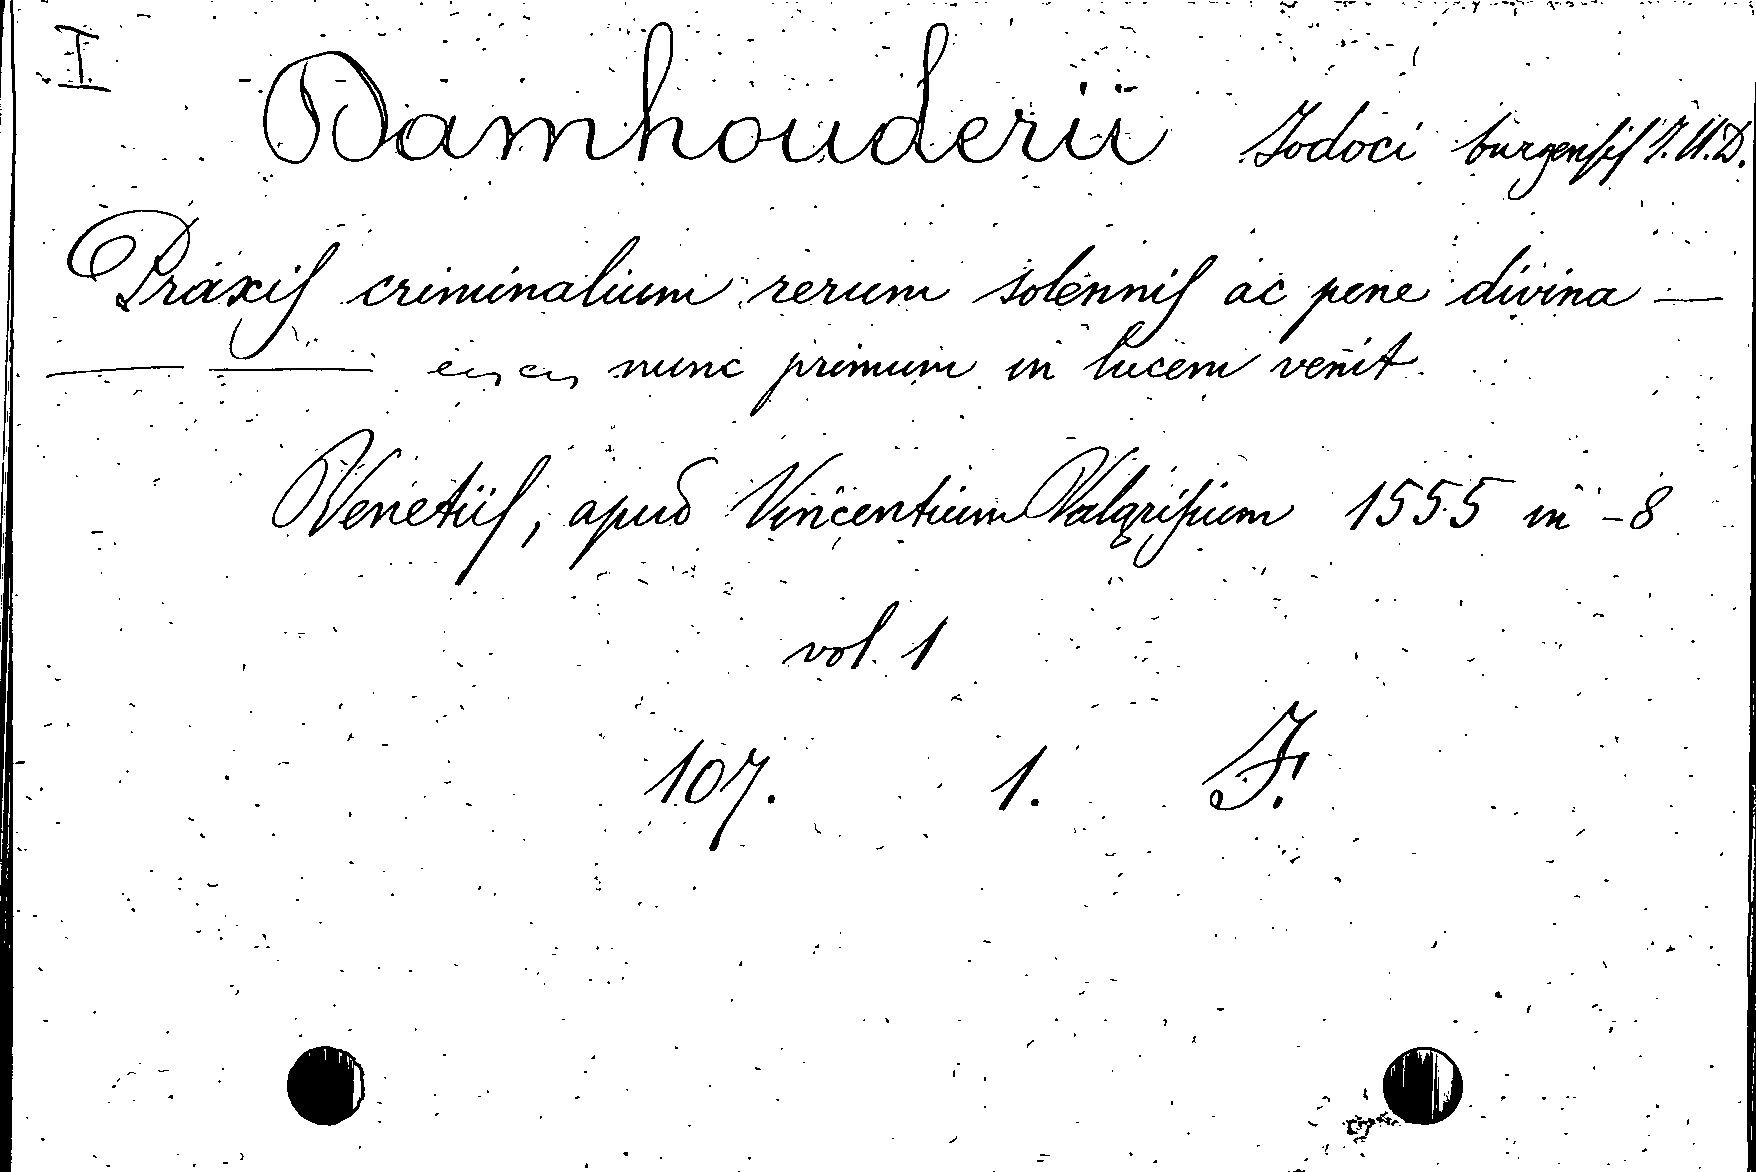 I
Damhouderii Jodoci burgensis J.U.D.
Praxis criminalium rerum solennis ac pene divina —
— — nunc primum in lucem venit
Venetiis, apud Vincentium Valgrisium 1555 in -8
vol. 1
107. 1. F.